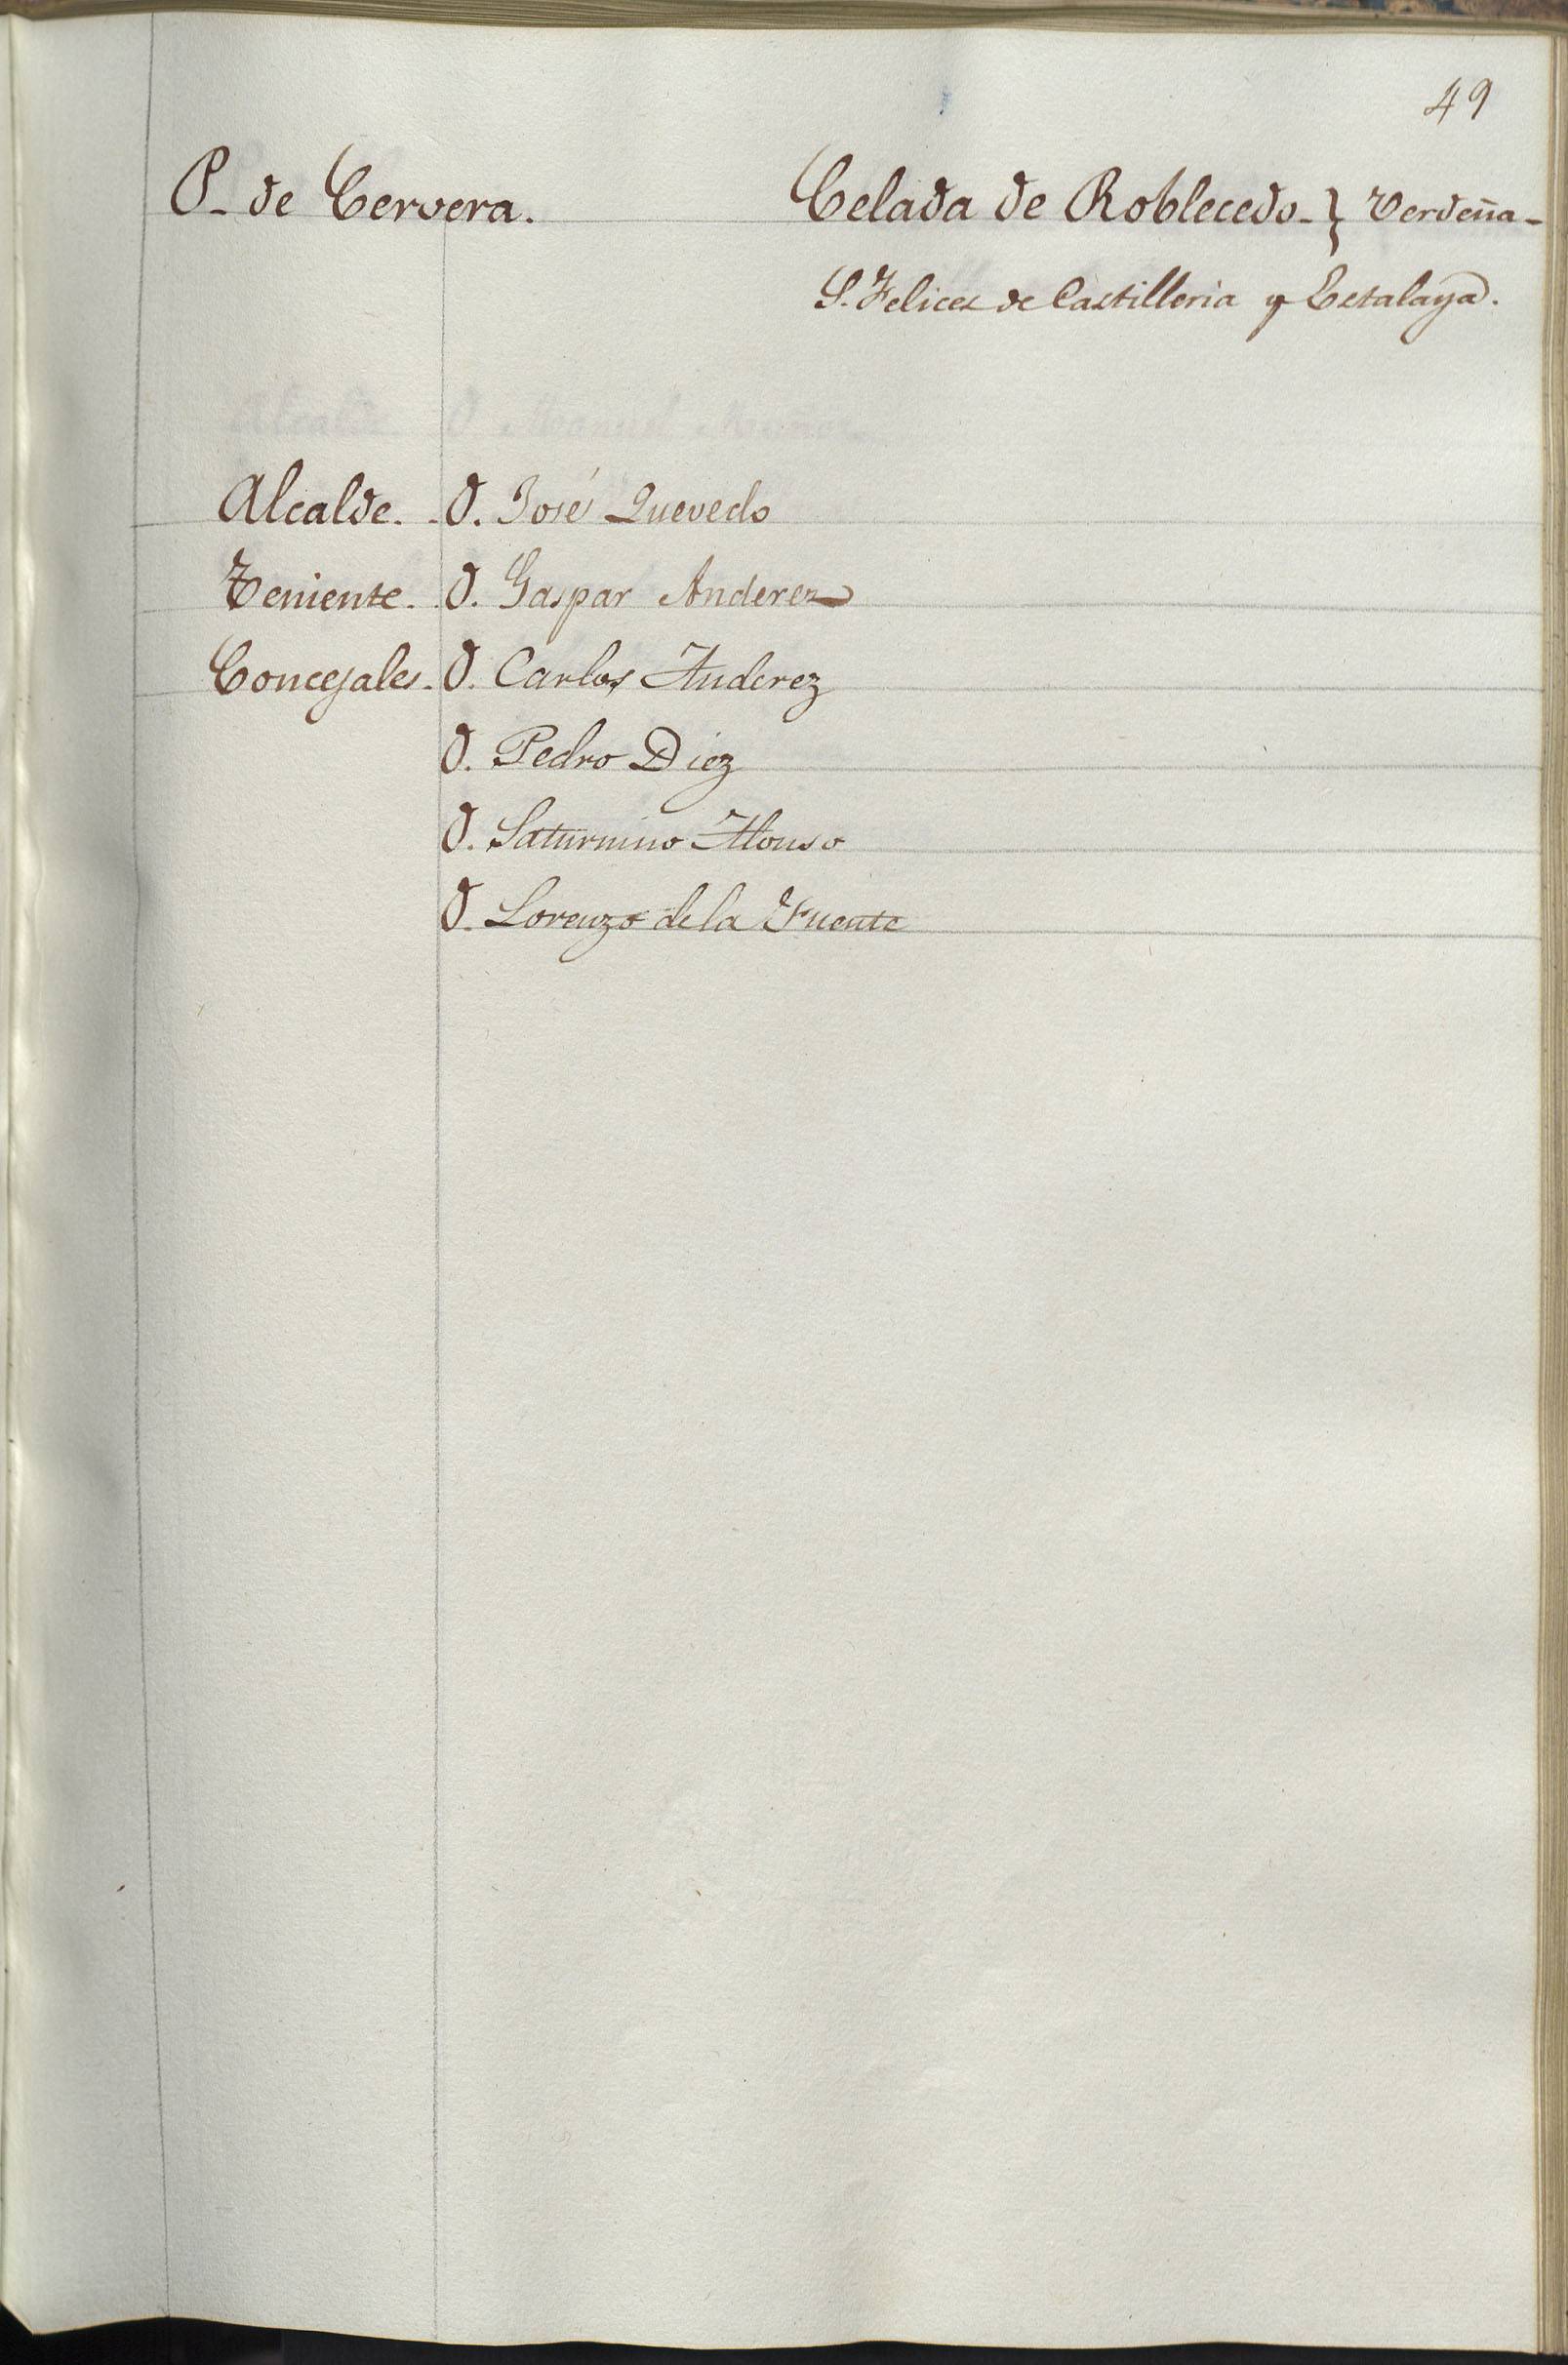 49
P. de Cervera. Celada de Roblecedo - } Verdeña -
S. Felices de Castilleria y Estalaya.
Alcalde. - D. José Quevedo
Teniente. - D. Gaspar Anderez
Concejales - D. Carlos Anderez
D. Pedro Diez
D. Saturnino Alonso
D. Lorenzo de la Fuente